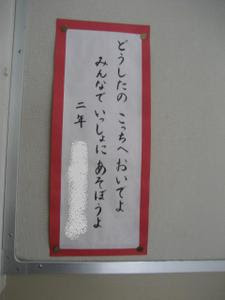 どうしたの こっちへ おいでよ
みんなで いっしょに あそぼうよ
二年